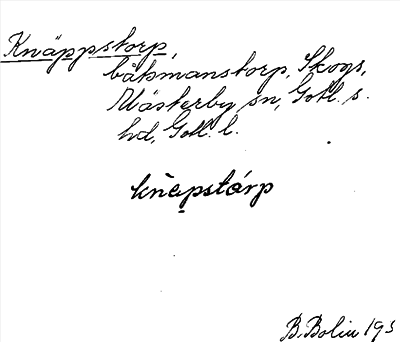 Knäppstorp,
båtsmanstorp, Skogs,
Mästerby sn, Gotl. s.
hd, Gotl. l.
knæpstɷrp
B. Bolin 193